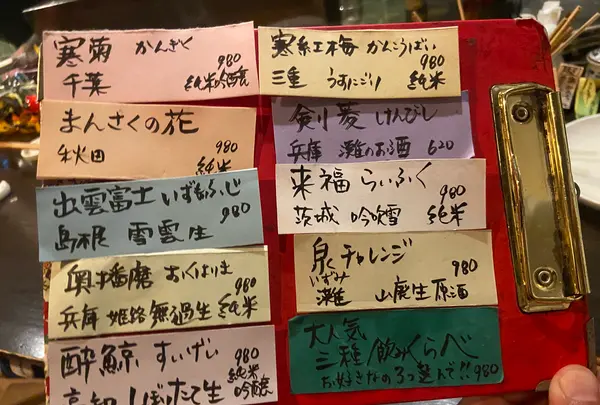 寒菊 かんぎく 980
千葉 純米吟醸
まんさくの花 980
秋田 純米
出雲富士 いずもふじ 980
島根 雪雲 生
奥播磨 おくはりま 980
兵庫 姫路 無過生 純米
酔鯨 すいげい 980
高知 しぼりたて生 純米吟醸
寒紅梅 かんこうばい 980
三重 うすにごり 純米
剣菱 けんびし
兵庫 灘のお酒 620
来福 らいふく 980
茨城 吟吹雪 純米
泉チャレンジ 980
いずみ
灘 山廃生原酒
大人気
三種 飲みくらべ
お好きなの3つ選んで!! 980